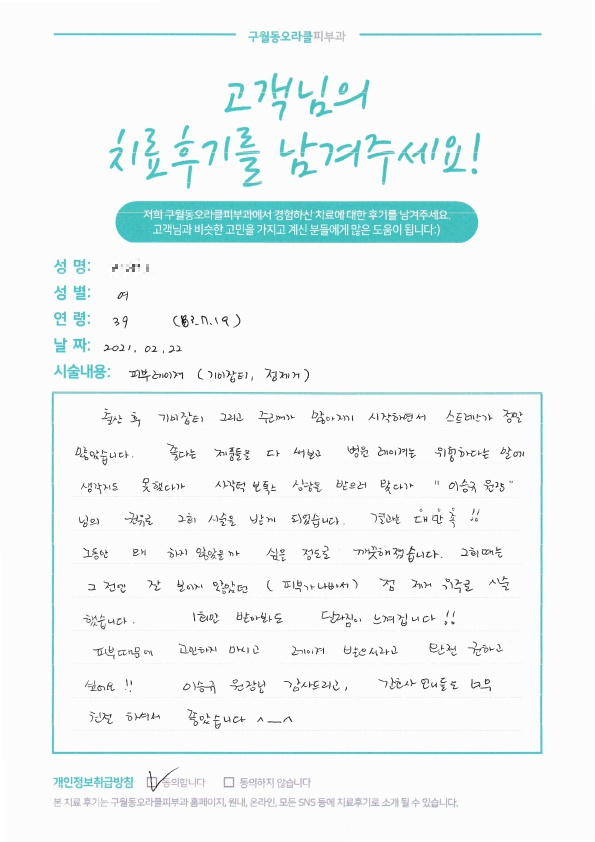 구월동오라클피부과
고객님의
치료후기를 남겨주세요!
저희 구월동오라클피부과에서 경험하신 치료에 대한 후기를 남겨주세요.
고객님과 비슷한 고민을 가지고 계신 분들에게 많은 도움이 됩니다:)
성 명:
성 별: 여
연 령: 39 (83.7.19)
날 짜: 2021. 02. 22
시술내용: 피부레이저 (기미잡티, 점제거)
출산 후 기미잡티 그리고 주근깨가 많아지기 시작하면서 스트레스가 정말
많았습니다. 좋다는 제품들을 다 써보고 병원 레이저는 위험하다는 말에
생각지도 못했다가 사각턱 보톡스 상담을 받으러 왔다가 "이승규 원장"
님의 권유로 2회 시술을 받게 되었습니다. 결과는 대만족!!
그동안 왜 하지 않았을까 싶을 정도로 깨끗해졌습니다. 2회때는
그 전엔 잘 보이지 않았던 (피부가 나빠서) 점 제거 위주로 시술
했습니다. 1회만 받아와도 달라짐이 느껴집니다!!
피부때문에 고민하지 마시고 레이저 받으시라고 완전 권하고
싶어요!! 이승규 원장님 감사드리고, 간호사 언니들도 너무
친절 하셔서 좋았습니다 ^__^
개인정보취급방침 동의합니다 동의하지 않습니다
본 치료 후기는 구월동오라클피부과 홈페이지, 원내, 온라인, 모든 SNS 등에 치료후기로 소개 될 수 있습니다.